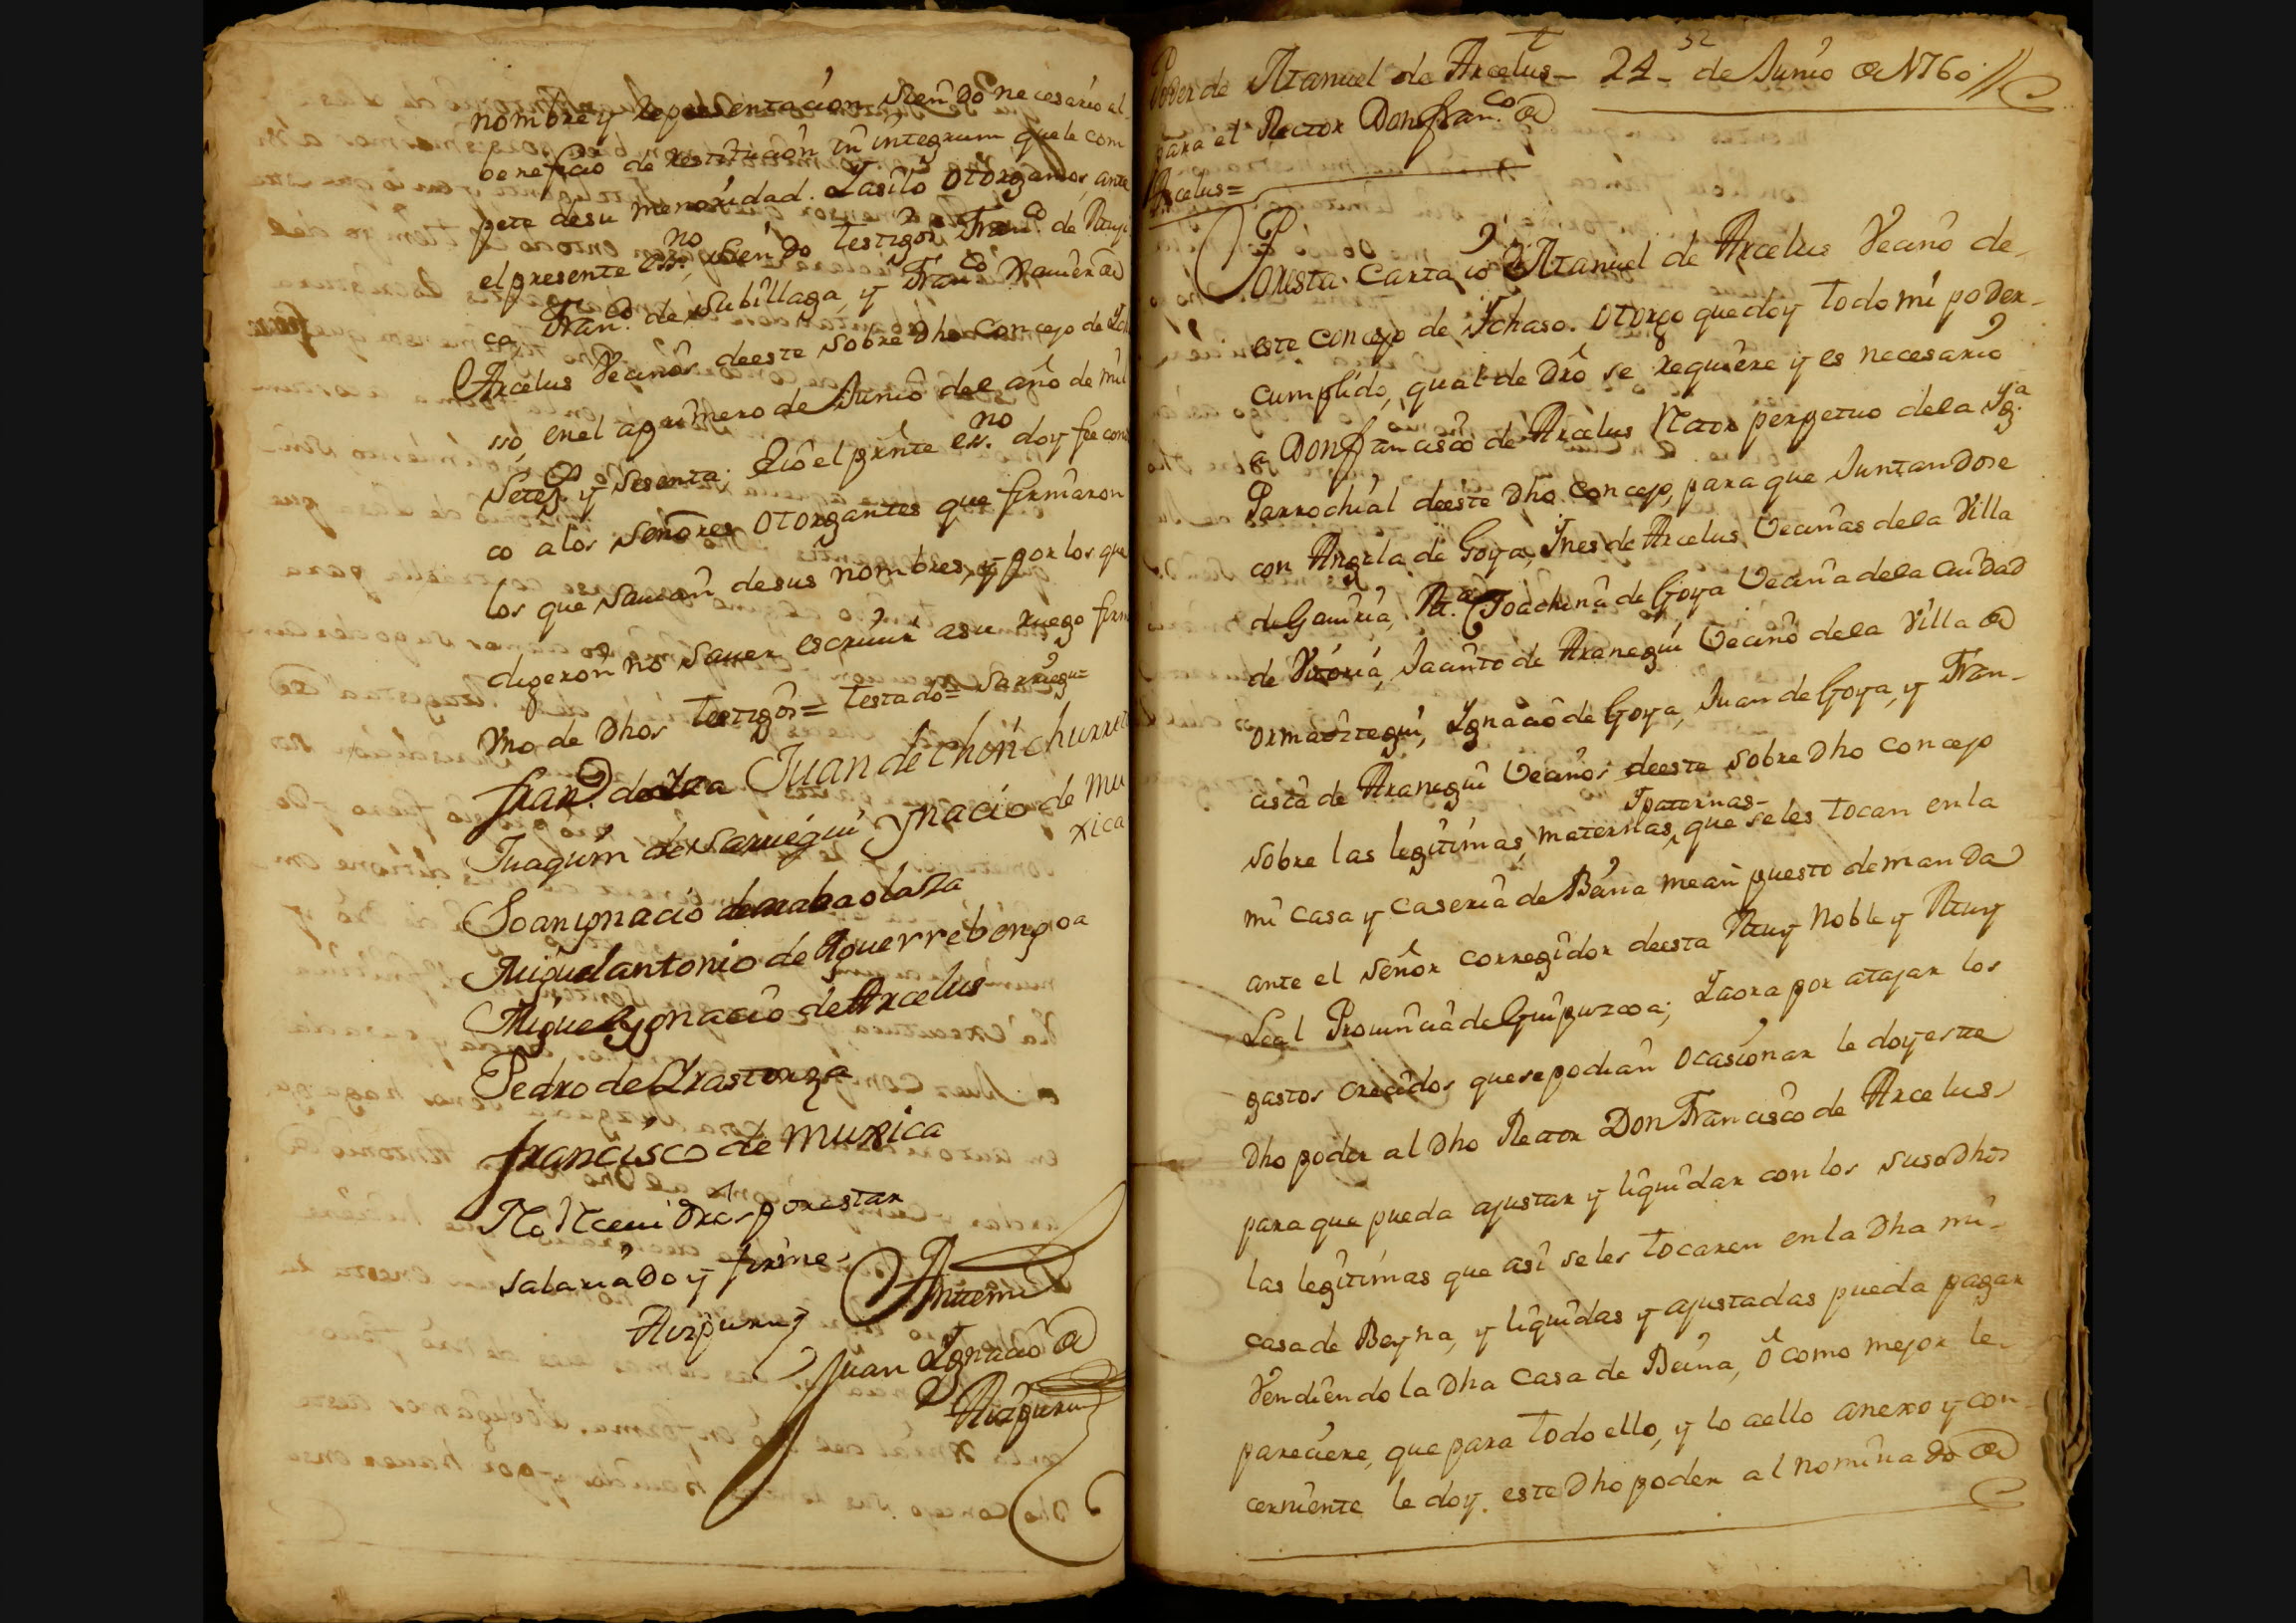 nombre y representacion siendo necesario al
beneficio de restitucion in integrum que le com
pete de su menoridad. Y asi lo otorgamos, ante
el presente essno, siendo testigos Franco de Muji
ca Franco de Subillaga, y Franco Xauier de
Arcelus Vecinos de este sobre dho concejo de Ich
sso, en el a primero de Junio del año de mil
setezs y sesenta; e io el prsnte esno doy fee cono
co a los señores otorgantes que firmaron
los que sauian de sus nombres, y por los que
digeron no sauer escriuir a su ruego firm
Vno de dhos testigos= testado= Sarriegu=
Juan de Chonchurret
Juaquin de Sarriegui Ynacio de Mu
xica
Joan ygnacio de
Miguel antonio de Aguerrebengoa
Miguel ygnacio de Arcelus
Pedro de Yrastorza
francisco de muxica
No Rceui dros por estar
salariado y firme
Aizpuru
Antemi
Juan Ygnacio de
Aizpuru
32
Poder de Manuel de Arcelus 24 de Junio de 1760
para el Rector Don Franco de
Arcelus=
Por esta carta io Manuel de Arcelus Vecino de
este concejo de Ichaso. Otorgo que doy todo mi poder
cumplido, qual de dro se requiere y es necesario
a Don francisco de Arcelus Rector perpetuo de la Yga
Parrochial de este dho concejo, para que Juntandose
con Angela de Goya, Ines de Arcelus, Vecinas de la Villa
de Gauiria, Ma Joachina de Goya Vecina de la Ciudad
de Vitoria, Jacinto de Aranegui Vecino de la Villa de
Ormaiztegui, Ygnacio de Goya, Juan de Goya, y Fran
cisca de Aranegui Vecinos de este sobre dho concejo
Ipaternas
sobre las legitimas maternas, que se les tocan en la
mi casa y caseria de Beina me an puesto demanda
ante el señor corregidor de esta Muy Noble y Muy
Leal Prouincia de Guipuzcoa; Y aora por atajar los
gastos crecidos que se podian ocasionar le doy este
dho poder al dho Rector Don Francisco de Arcelus
para que pueda ajustar y liquidar con los susodhos
las legitimas que asi se les tocaren en la dha mi
casa de Beyna, y liquidas y ajustadas pueda pagar
Vendiendo la dha casa de Beina, o como mejor le
pareciere, que para todo ello, y lo a ello anexo y con
cerniente le doy este dho poder al nominado de